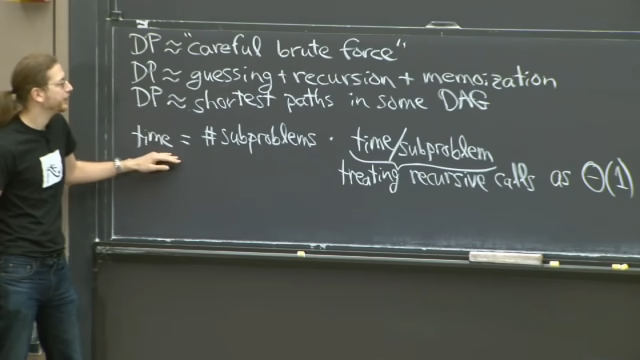 DP ≈ "careful brute force"
DP ≈ guessing + recursion + memoization
DP ≈ shortest paths in some DAG
time = # subproblems · time/subproblem
treating recursive calls as Θ(1)